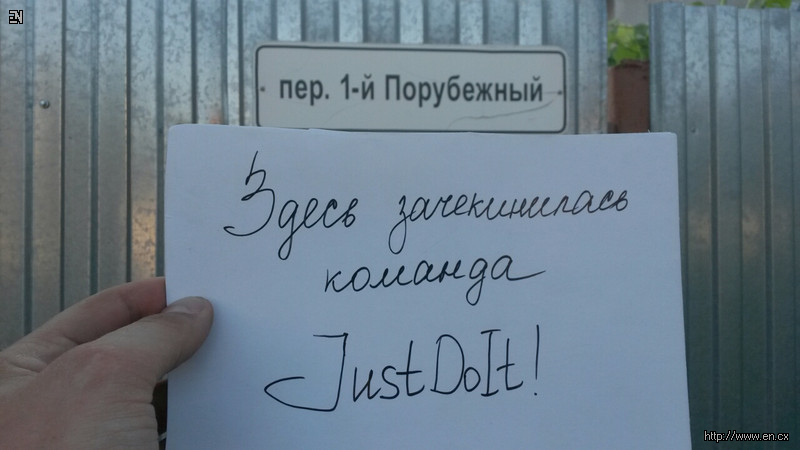 EN
пер. 1-й Порубежный
Здесь зачекинилась
команда
JustDoIt!
http://www.en.cx